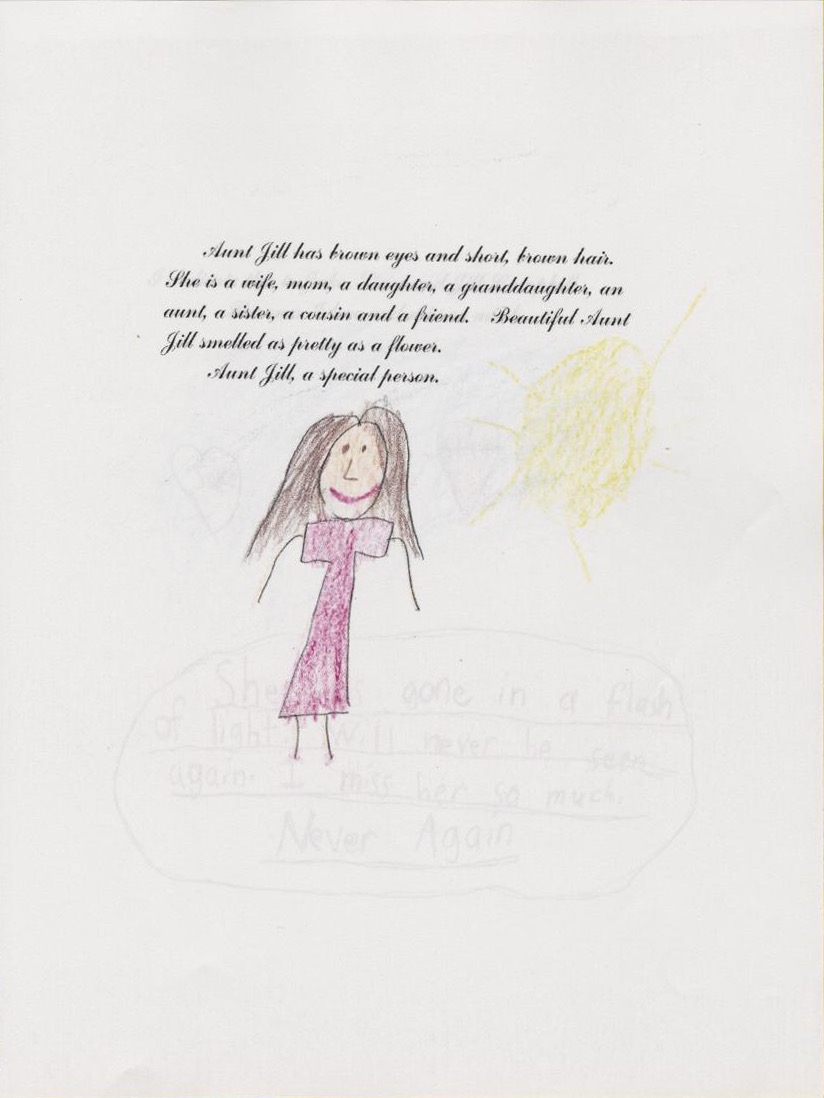 Aunt Jill has brown eyes and short, brown hair.
She is a wife, mom, a daughter, a granddaughter, an
aunt, a sister, a cousin and a friend. Beautiful Aunt
Jill smelled as pretty as a flower.
Aunt Jill, a special person.
She gone in a flash
of light. Will never be seen
again. I miss her so much.
Never Again